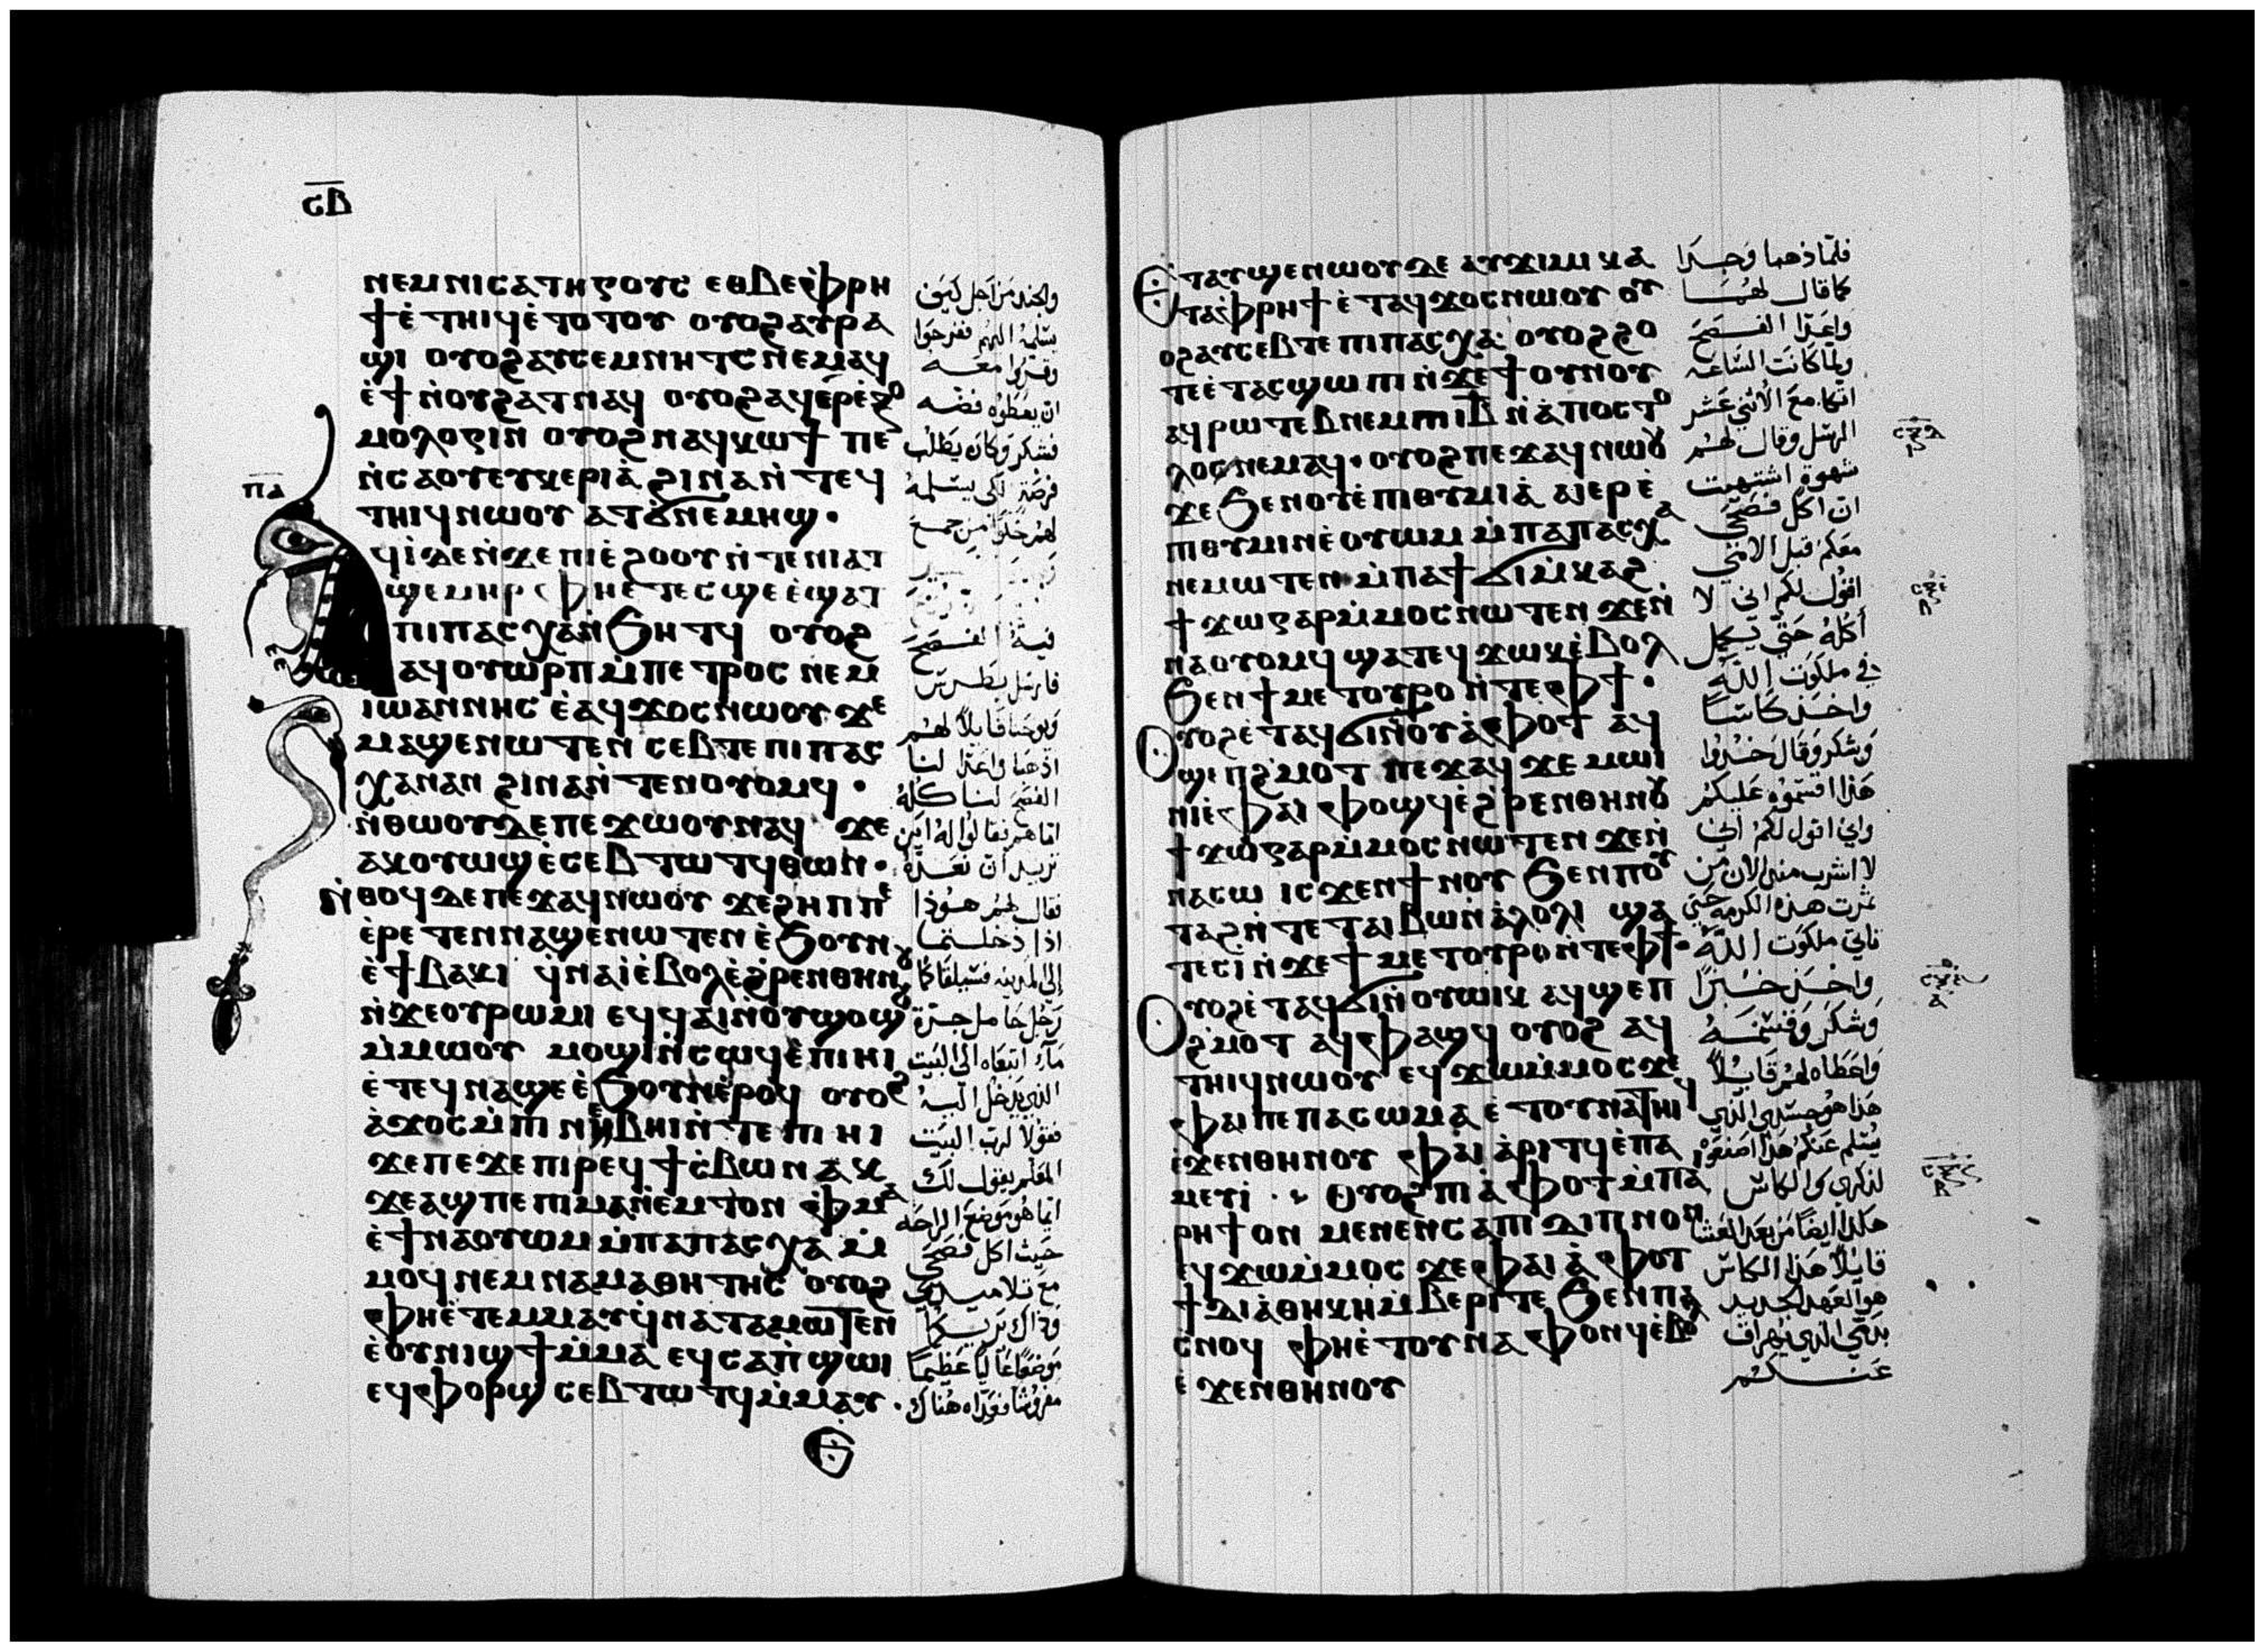 ⲛⲉⲙⲛⲓⲥⲁⲧⲏⲅⲟⲩⲥ ⲉⲑⲃⲉⲫⲣⲏ
ϯⲉ̀ⲧⲏⲓϥⲉ̀ⲧⲟⲧⲟⲩ ⲟⲩⲟϩⲁⲩⲣⲁ
ϣⲓ ⲟⲩⲟϩⲁⲩⲥⲉⲙⲛⲏⲧⲥⲛⲉⲙⲁϥ
ⲉ̀ϯⲛ̀ⲟⲩϩⲁⲧⲛⲁϥ ⲟⲩⲟϩⲁϥⲉⲣⲉ̀ⲝⲟ
ⲙⲟⲗⲟⲅⲓⲛ ⲟⲩⲟϩⲛⲁϥⲕⲱϯ ⲡⲉ
ⲛ̀ⲥⲁⲟⲩⲉⲩⲕⲉⲣⲓⲁ̀ ϩⲓⲛⲁⲛ̀ⲧⲉϥ
ⲧⲏⲓϥⲛⲱⲟⲩ ⲁⲧϭⲛⲉⲙⲏϣ
ⲡⲁ
ϥⲓ̀ⲇⲉⲛ̀ϫⲉⲡⲓⲉ̀ϩⲟⲟⲩⲛ̀ⲧⲉⲛⲓⲁⲧ
ϣⲉⲙⲏⲣ ⲫⲏⲉ̀ⲧⲉⲥϣⲉⲉ̀ϣⲁⲧ
ⲡⲓⲡⲁⲥⲭⲁⲛ̀ϧⲏⲧϥ ⲟⲩⲟϩ
ⲁϥⲟⲩⲱⲣⲡⲙ̀ⲡⲉⲧⲣⲟⲥ ⲛⲉⲙ
ⲓⲱⲁⲛⲛⲏⲥ ⲉ̀ⲁϥϫⲟⲥⲛⲱⲟⲩ ϫⲉ
ⲙⲁϣⲉⲛⲱⲧⲉⲛ ⲥⲉⲃⲧⲉ ⲡⲓⲡⲁⲥ
ⲭⲁⲛⲁⲛ ϩⲓⲛⲁⲛ̀ⲧⲉⲛⲟⲩⲟⲙϥ
ⲛ̀ⲑⲱⲟⲩⲇⲉⲡⲉϫⲱⲟⲩⲛⲁϥ ϫⲉ
ⲁⲕⲟⲩⲱϣⲉ̀ⲥⲉⲃⲧⲱⲧϥⲑⲱⲛ
ⲛ̀ⲑⲟϥⲇⲉⲡⲉϫⲁϥⲛⲱⲟⲩ ϫⲉϩⲏⲡⲡⲉ
ⲉ̀ⲣⲉⲧⲉⲛⲛⲁϣⲉⲛⲱⲧⲉⲛ ⲉ̀ϧⲟⲩⲛ
ⲉ̀ϯⲃⲁⲕⲓ ϥ̀ⲛⲁⲓ̀ⲉ̀ⲃⲟⲗⲉ̀ϩⲣⲉⲛⲑⲏⲛⲟⲩ
ⲛ̀ϫⲉⲟⲩⲣⲱⲙⲓ ⲉϥϥⲁⲓⲛ̀ⲟⲩϣⲟϣ
ⲙ̀ⲙⲱⲟⲩ ⲙⲟϣⲓⲛ̀ⲥⲱϥⲉ̀ⲡⲓⲏⲓ
ⲉ̀ⲧⲉϥⲛⲁϣⲉⲉ̀ϧⲟⲩⲛⲉ̀ⲣⲟϥ ⲟⲩⲟϩ
ⲁ̀ϫⲟⲥⲙ̀ⲡⲓⲛⲏⲃⲏⲓⲛ̀ⲧⲉⲡⲓⲏⲓ
ϫⲉⲡⲉϫⲉⲡⲓⲣⲉϥϯⲥ̀ⲃⲱⲛⲁⲕ
ϫⲉⲁϣⲡⲉⲡⲓⲙⲁⲛ̀ⲉⲙⲧⲟⲛ ⲫⲙⲁ
ⲉ̀ϯⲛⲁⲟⲩⲱⲙⲙ̀ⲡⲁⲡⲁⲥⲭⲁ ⲙ̀
ⲙⲟϥⲛⲉⲙⲛⲁⲙⲁⲑⲏⲧⲏⲥ ⲟⲩⲟϩ
ⲫⲏⲉ̀ⲧⲉⲙⲙⲁⲩϥ̀ⲛⲁⲧⲁⲙⲱⲧⲉⲛ
ⲉ̀ⲟⲩⲛⲓϣϯⲙ̀ⲙⲁ ⲉϥⲥⲁⲡ̀ϣⲱⲓ
ⲉϥⲫⲟⲣϣ ⲥⲉⲃⲧⲱⲧϥⲙ̀ⲙⲁⲩ
والجند من اجل كيف
يسلمه اليهم ففرحوا
وقرروا معه
ان يعطوه فضه
فشكر وكان يطلب
فرصة لكي يسلمه
لهم خلوا من جمع
فيه الفصح
فارسل بطرس
ويوحنا قايلا لهم
اذهبا واعدا لنا
الفصح لناكله
اما هم فقالوا له اين
تريد ان نعده
فقال لهم هوذا
اذا دخلتما
الي المدينه فسيلقاكما
رجل حامل جرة
ماء اتبعاه الى البيت
الذي يدخل اليه
فقولا لرب البيت
المعلم يقول لك
ايما هو موضع الراحه
حيث اكل فصحي
مع تلاميدي
وذاك يريكما
موضعا عاليا عظيما
مفروشا فعداه هناك
Ⲉⲧⲁⲩϣⲉⲛⲱⲟⲩⲇⲉ ⲁⲩϫⲓⲙⲓ ⲕⲁ
ⲧⲁⲫⲣⲏϯ ⲉ̀ⲧⲁϥϫⲟⲥⲛⲱⲟⲩ ⲟⲩ
ⲟϩⲁⲩⲥⲉⲃⲧⲉ ⲡⲓⲡⲁⲥⲭⲁ ⲟⲩⲟϩϩⲟ
ⲧⲉⲉ̀ⲧⲁⲥϣⲱⲡⲓ ⲛ̀ϫⲉϯⲟⲩⲛⲟⲩ
ⲁϥⲣⲱⲧⲉⲃⲛⲉⲙⲡⲓⲓⲃ ⲛ̀ⲁ̀ⲡⲟⲥⲧⲟ
ⲗⲟⲥⲛⲉⲙⲁϥ ⲟⲩⲟϩⲡⲉϫⲁϥⲛⲱⲟⲩ
ϫⲉϧⲉⲛⲟⲩⲉ̀ⲡⲓⲑⲩⲙⲓⲁ̀ ⲁⲓⲉⲣⲉ̀
ⲡⲓⲑⲩⲙⲓⲛⲉ̀ⲟⲩⲱⲙ ⲙ̀ⲡⲁⲡⲁⲥⲭⲁ
ⲛⲉⲙⲱⲧⲉⲛ ⲙ̀ⲡⲁϯϭⲓⲙ̀ⲕⲁϩ
ϯϫⲱⲅⲁⲣⲙ̀ⲙⲟⲥⲛⲱⲧⲉⲛ ϫⲉⲛ̀
ⲛⲁⲟⲩⲟⲙϥ ϣⲁⲧⲉϥϫⲱⲕⲉ̀ⲃⲟⲗ
ϧⲉⲛϯⲙⲉⲧⲟⲩⲣⲟ ⲛ̀ⲧⲉⲫϯ
Ⲟⲩⲟϩⲉ̀ⲧⲁϥϭⲓⲛ̀ⲟⲩⲁ̀ⲫⲟⲧ ⲁϥ
ϣⲉⲡϩ̀ⲙⲟⲧ ⲡⲉϫⲁϥ ϫⲉ ⲙⲱⲓ
ⲛⲓⲉ̀ⲫⲁⲓ ⲫⲟϣϥⲉ̀ϩ̀ⲣⲉⲛⲑⲏⲛⲟⲩ
ϯϫⲱⲅⲁⲣⲙ̀ⲙⲟⲥⲛⲱⲧⲉⲛ ϫⲉⲛ̀
ⲛⲁⲥⲱ ⲓⲥϫⲉⲛϯⲛⲟⲩ ϧⲉⲛⲡⲟⲩ
ⲧⲁϩⲛ̀ⲧⲉⲧⲁⲓⲃⲱⲛ̀ⲁ̀ⲗⲟⲗⲓ ϣⲁ
ⲧⲉⲥⲓ̀ⲛ̀ϫⲉϯⲙⲉⲧⲟⲩⲣⲟⲛ̀ⲧⲉⲫϯ
Ⲟⲩⲟϩⲉ̀ⲧⲁϥϭⲓⲛ̀ⲟⲩⲱⲓⲕ ⲁϥϣⲉⲡ
ϩ̀ⲙⲟⲧ ⲁϥⲫⲁϣϥ ⲟⲩⲟϩ ⲁϥ
ⲧⲏⲓϥⲛⲱⲟⲩ ⲉϥϫⲱⲙ̀ⲙⲟⲥϫⲉ
ⲫⲁⲓⲡⲉⲡⲁⲥⲱⲙⲁ ⲉ̀ⲧⲟⲩⲛⲁⲧⲏⲓϥ
ⲉ̀ϫⲉⲛⲑⲏⲛⲟⲩ ⲫⲁⲓ ⲁ̀ⲣⲓⲧϥⲉ̀ⲡⲁ
ⲙⲉⲩⲓ̀ Ⲟⲩⲟϩⲡⲓⲁ̀ⲫⲟⲧⲙ̀ⲡⲁⲓ
ⲣⲏϯⲟⲛ ⲙⲉⲛⲉⲛⲥⲁⲡⲓⲇⲓⲡⲛⲟⲛ
ⲉϥϫⲱⲙ̀ⲙⲟⲥ ϫⲉⲫⲁⲓ ⲁ̀ⲫⲟⲧ
ϯⲇⲓⲁ̀ⲑⲏⲕⲏⲙ̀ⲃⲉⲣⲓⲧⲉ ϧⲉⲛⲡⲁ
ⲥⲛⲟϥ ⲫⲏⲉ̀ⲧⲟⲩⲛⲁⲫⲟⲛϥⲉ̀ⲃⲟⲗ
ⲉ̀ϫⲉⲛⲑⲏⲛⲟⲩ
فلما ذهبا وجدا
كما قال لهما
واعدا الفصح
ولما كانت الساعه
اتكا مع الاثني عشر
الرسل وقال لهم
شهوة اشتهيت
ان اكل فصحي
معكم قبل الامي
اقول لكم اني لا
أكله حتي يكمل
في ملكوت الله
واخذ كاسا
وشكر وقال خذوا
هذا اقتسموه عليكم
واني اقول لكم اني
لا اشرب منى الان من
ثمرت هذه الكرمه حتي
تاتي ملكوت الله
واخذ خبزا
وشكر وقسمه
واعطاه لهم قايلا
هذا هو جسدي الذي
يسلم عنكم هذا اصنعوه
لذكري والكاس
هكذا ايضا من بعد العشا
قايلا هذا الكاس
هو العهد الجديد
بدمي الذي يهراق
عنكم